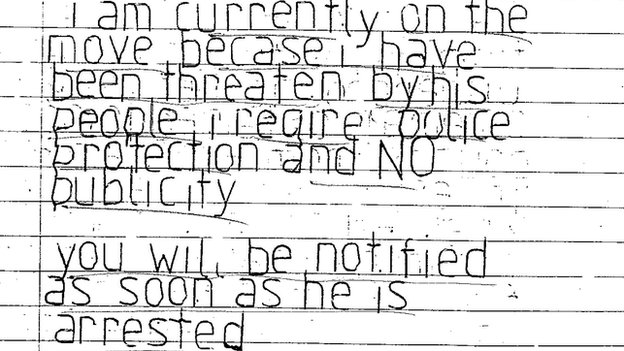 i am currently on the
move becase i have
been threaten by his
people i reqire police
protection and NO
publicity
you will be notified
as soon as he is
arrested